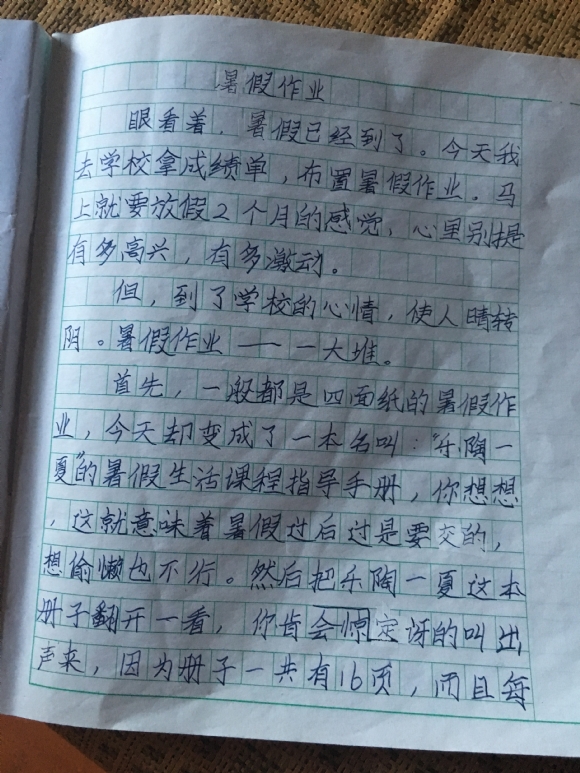 暑假作业
眼看着，暑假已经到了。今天我
去学校拿成绩单，布置暑假作业。马
上就要放假2个月的感觉，心里别提
有多高兴，有多激动。
但，到了学校的心情，使人晴转
阴。暑假作业——一大堆。
首先，一般都是四面纸的暑假作
业，今天却变成了一本名叫：“乐陶一
夏”的暑假生活课程指导手册，你想想
，这就意味着暑假过后过是要交的，
想偷懒也不行。然后把乐陶一夏这本
册子翻开一看，你肯会惊定讶的叫出
声来，因为册子一共有16页，而且每